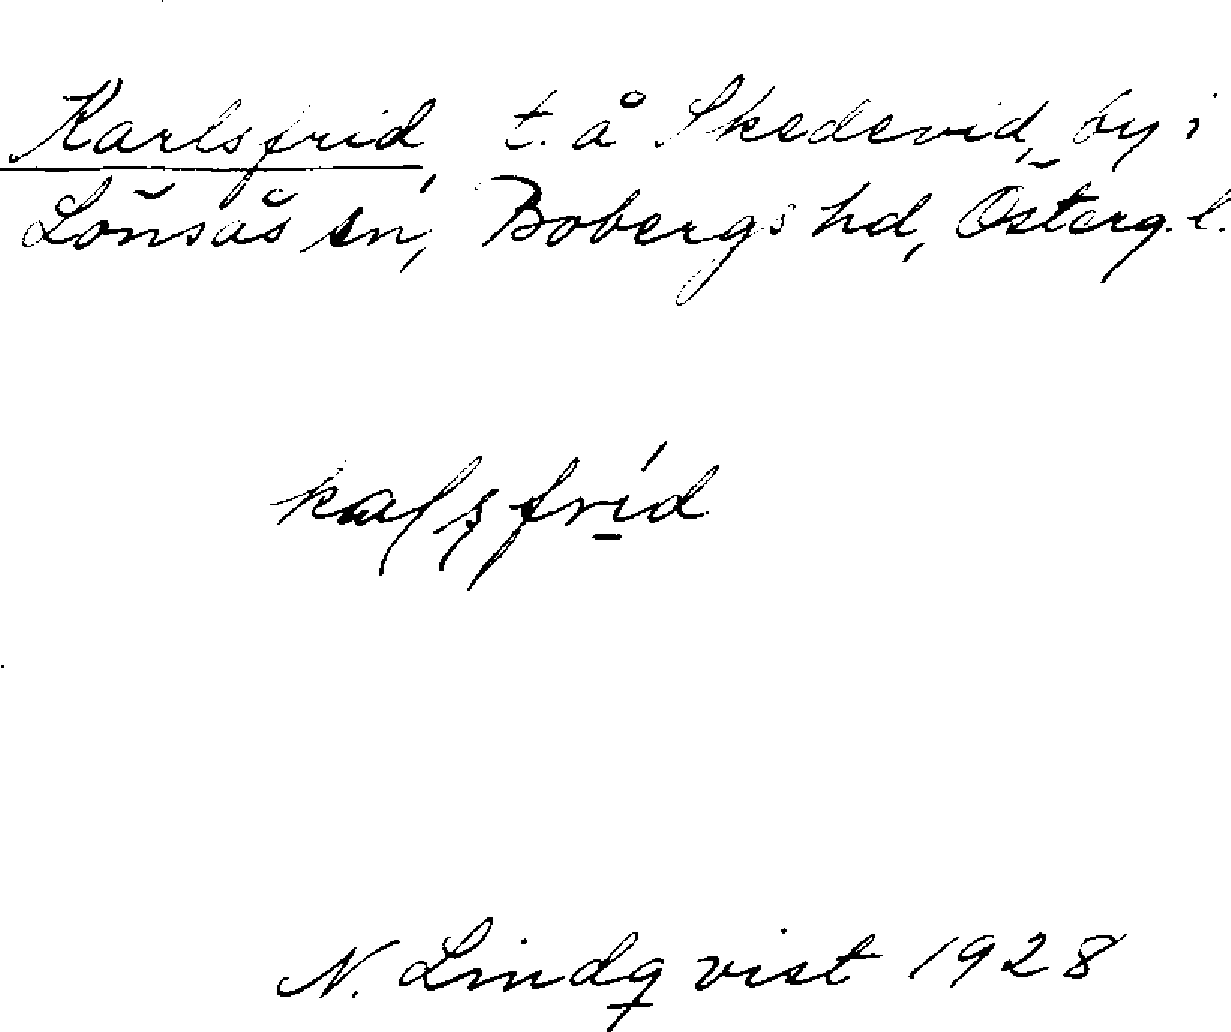 Karlsfrid, t. å Skedevid, by i
Lönsås sn, Bobergs hd, Österg. l.
kaḷṣfríd
N. Lindqvist 1928